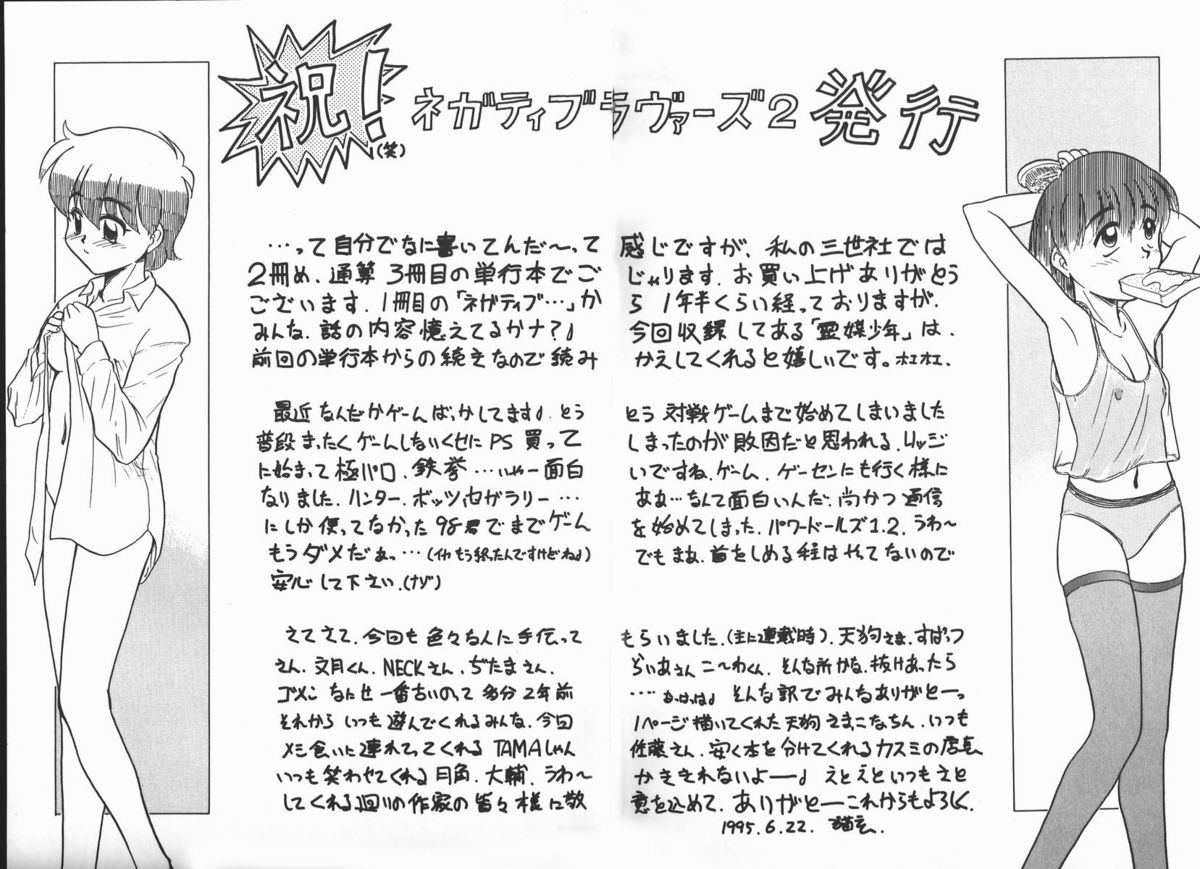 祝!(笑) ネガティブラヴァーズ2 発行
…って自分でなに書いてんだ〜って感じですが、私の三世社では
2冊め、通算3冊目の単行本でごじゃります。お買い上げありがとう
ございます。1冊目の「ネガティブ…」から1年半くらい経っておりますが、
みんな、話の内容憶えてるかナ?♪今回収録してある「霊媒少年」は、
前回の単行本からの続きなので読みかえしてくれると嬉しいです。ホエホエ、
最近なんだかゲームばっかしてます♪とうとう対戦ゲームまで始めてしまいました
普段まったくゲームしないくせにPS買ってしまったのが敗因だと思われる、リッジ
に始まって極パロ、鉄拳…いやー面白いですね、ゲーム、ゲーセンにも行く様に
なりました、ハンター、ボッツ、セガラリー…ああ…なんて面白いんだ、尚かつ通信
にしか使ってなかった98君でまでゲームを始めてしまった、パワードールズ1.2、うわ〜
もうダメだぁっ…(イヤもう終ったんですけどね♪)でもまぁ、首をしめる程はやってないので
安心して下さい、(ナゾ)
さてさて、今回も色々な人に手伝ってもらいました、(主に連載時)、天狗さま、すばっつ
さん、文月くん、NECKさん、ぢたまさん、らいあさん こ〜わくん、そんな所かな、抜けあったら
ゴメン なにせ一番古いのって多分2年前…、なっはっは♪ そんな訳でみんなありがとーっ
それからいつも遊んでくれるみんな、今回1ページ描いてくれた天狗さまこなちん、いつも
メシ食いに連れてってくれるTAMAしゃん佐藤さん、安く本を分けてくれるカスミの店長
いつも笑わせてくれる月角、大輔、うわ〜かききれないよー♪ えとえといつもさと
してくれる回りの作家の皆々様に敬意を込めて、ありがとーこれからもよろしく、
1995.6.22.